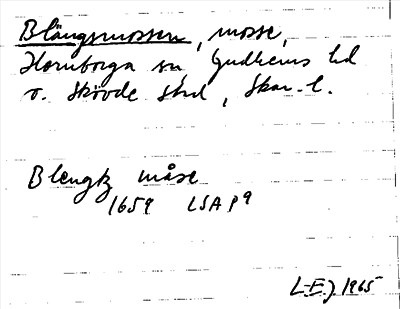 Blängsmossen, mosse,
Hornborga sn, Gudhems hd
o. Skövde stad, Skar. l.
Blengtz måse
1659 LSA P9
L-E.J. 1965